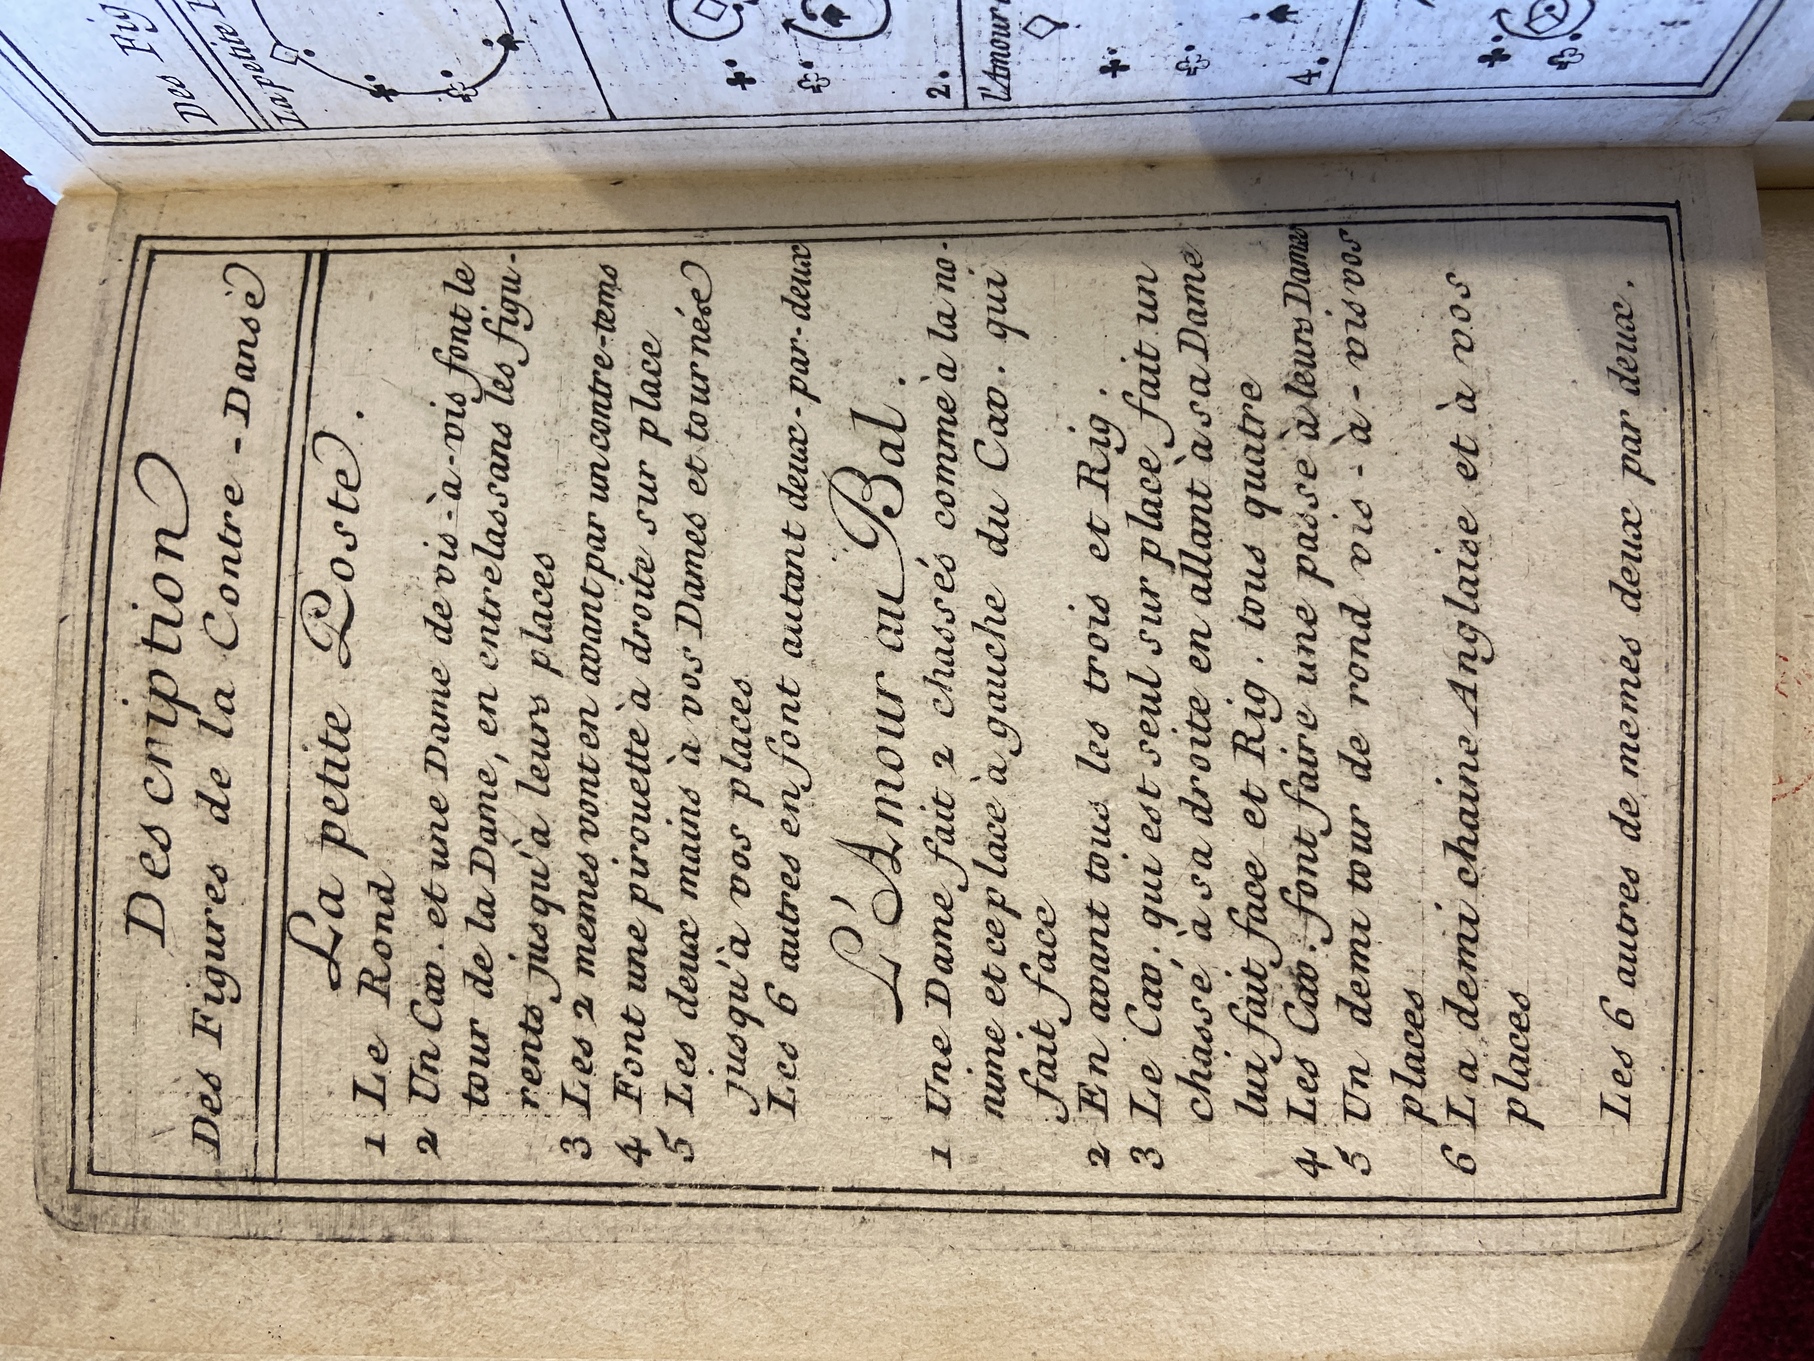 Description
Des Figures de la Contre-Danse
La petite Poste.
1 Le Rond
2 Un Cav. et une Dame de vis-à-vis font le
tour de la Dame, en entrelassans les figu-
rents jusqu'à leurs places
3 Les 2 memes vont en avant par un contre-tems
4 Font une pirouette à droite sur place
5 Les deux mains à vos Dames et tournése
jusqu'à vos places
Les 6 autres en font autant deux-par-deux
L'Amour au Bal.
1 Une Dame fait 2 chassés comme à la no-
nime et ce place à gauche du Cav. qui
fait face
2 En avant tous les trois et Rig.
3 Le Cav. qui est seul sur place fait un
chassé à sa droite en allant à sa Dame
lui fait face et Rig. tous quatre
4 Les Cav. font faire une passe à leurs Dames
5 Un demi tour de rond vis-à-vis vos
places
6 La demi chaine Anglaise et à vos
places
Les 6 autres de memes deux par deux.
Des Fig
La petite
2.
l'Amour
4.